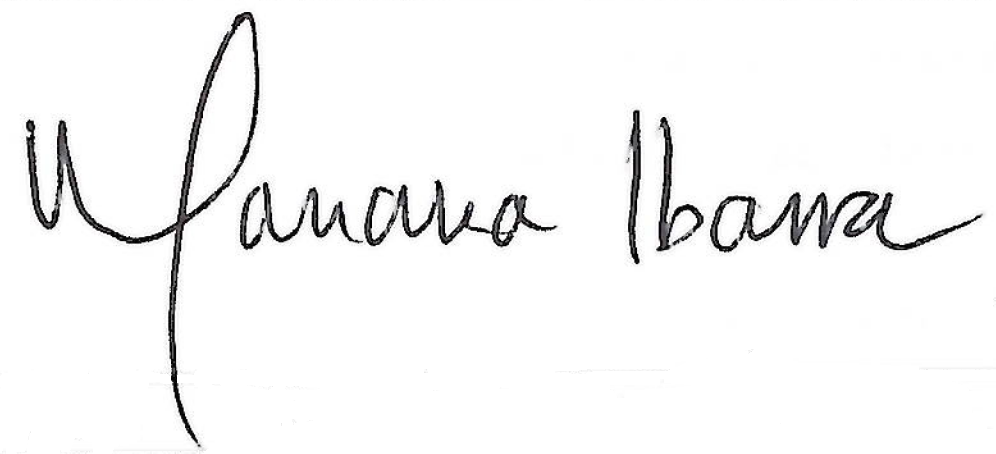 Mariana Ibarra